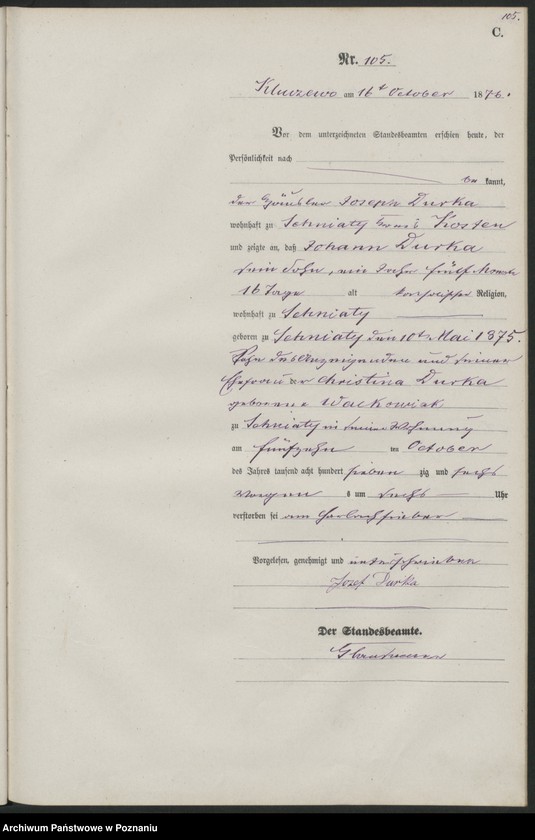 105.
C.
Nr. 105.
Kluczewo am 16t October 1876.
Vor dem unterzeichneten Standesbeamten erschien heute, der
Persönlichkeit nach
be kannt,
der Häusler Joseph Durka
wohnhaft zu Sehniaty Kreis Kosten
und zeigte an, daß Johann Durka
sein Sohn, ein Jahr fünf Monate
16 Tage alt katholischer Religion,
wohnhaft zu Sehniaty
geboren zu Sehniaty den 10t Mai 1875.
Sohn des Anzeigenden und seiner
Ehefrau Christina Durka
geborene Walkowiak
zu Sehniaty in seiner Wohnung
am fünfzehn ten October
des Jahres tausend acht hundert sieben zig und sechs
Morgen s um sechs Uhr
verstorben sei am
Vorgelesen, genehmigt und unterschrieben
Jozef Durka
Der Standesbeamte.
Archiwum Państwowe w Poznaniu